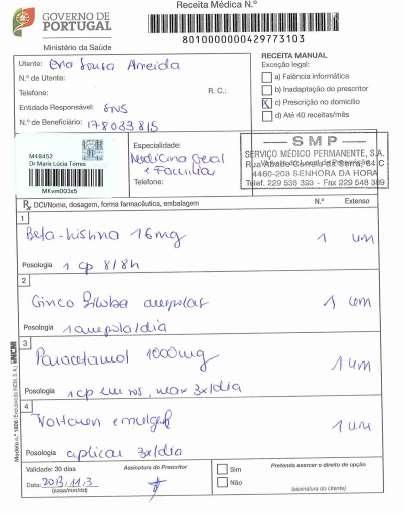 GOVERNO DE
PORTUGAL
Ministério da Saúde
Receita Médica N.º
8010000000429773103
Utente: Sousa Almeida
N.º de Utente:
Telefone: R. C.:
Entidade Responsável: SNS
N.º de Beneficiário: 178033815
RECEITA MANUAL
Exceção legal:
a) Falência informática
b) Inadaptação do prescritor
X c) Prescrição no domicílio
d) Até 40 receitas/mês
M48452
Dr Maria Lúcia Torres
Especialidade:
Medicina Geral
e Familiar
Telefone:
S M P
SERVIÇO MÉDICO PERMANENTE, S.A.
4460-208 SENHORA DA HORA
Telef. 229 538 393 - Fax 229 548 389
Rx DCI/Nome, dosagem, forma farmacêutica, embalagem N.º Extenso
1
Beta-histina 16mg 1 um
Posologia 1 cp 8/8h
2
Ginco Biloba ampolas 1 um
Posologia 1 ampola/dia
3
Paracetamol 1000mg 1 um
Posologia 1 cp em SOS, max 3x/dia
4
Voltaren emulgel 1 um
Posologia aplicar 3x/dia
Validade: 30 dias
Data: 2013.11.3
(aaaa/mm/dd)
Assinatura do Prescritor
Sim
Não
Pretendo exercer o direito de opção
(assinatura do Utente)